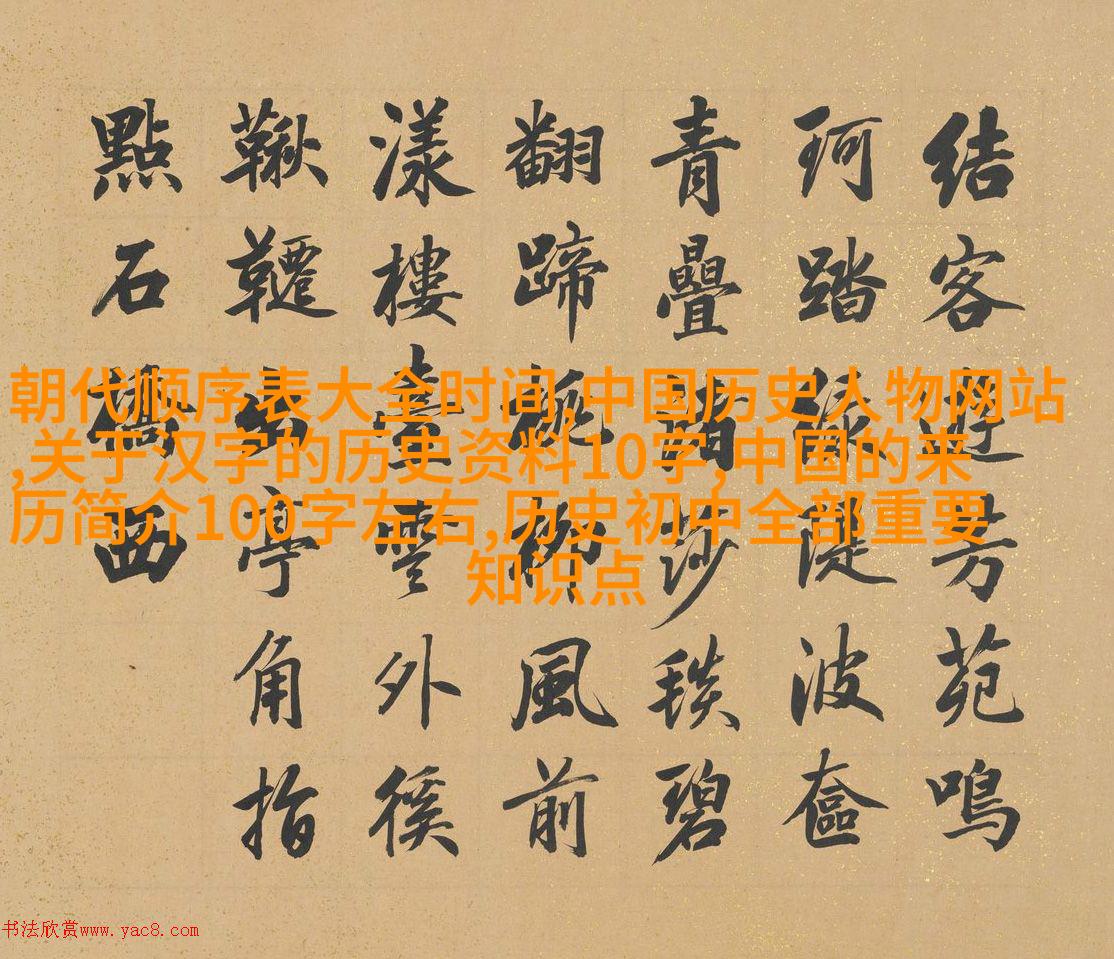 結客遊芳苑鳴
珂踏綠隄波奩
青疊莎毯碧
翻蹄柳風前
漾樓臺雲外徯
鞦韆出亭角指
點石橋西
朝代顺序表大全时间,中国历史人物网站
,关于汉字的历史资料10字,中国的来
历简介100字左右,历史初中全部重要
知识点
书法欣赏www.yac8.com